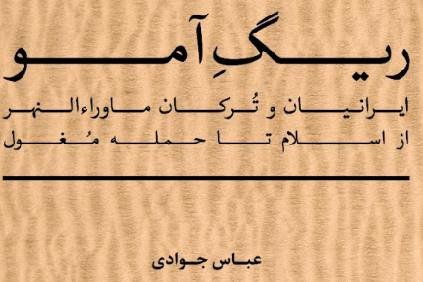 ریگِ آمو
ایرانیان و تُرکان ماوراءالنهر
از اسلام تا حمله مُغول
عباس جوادی